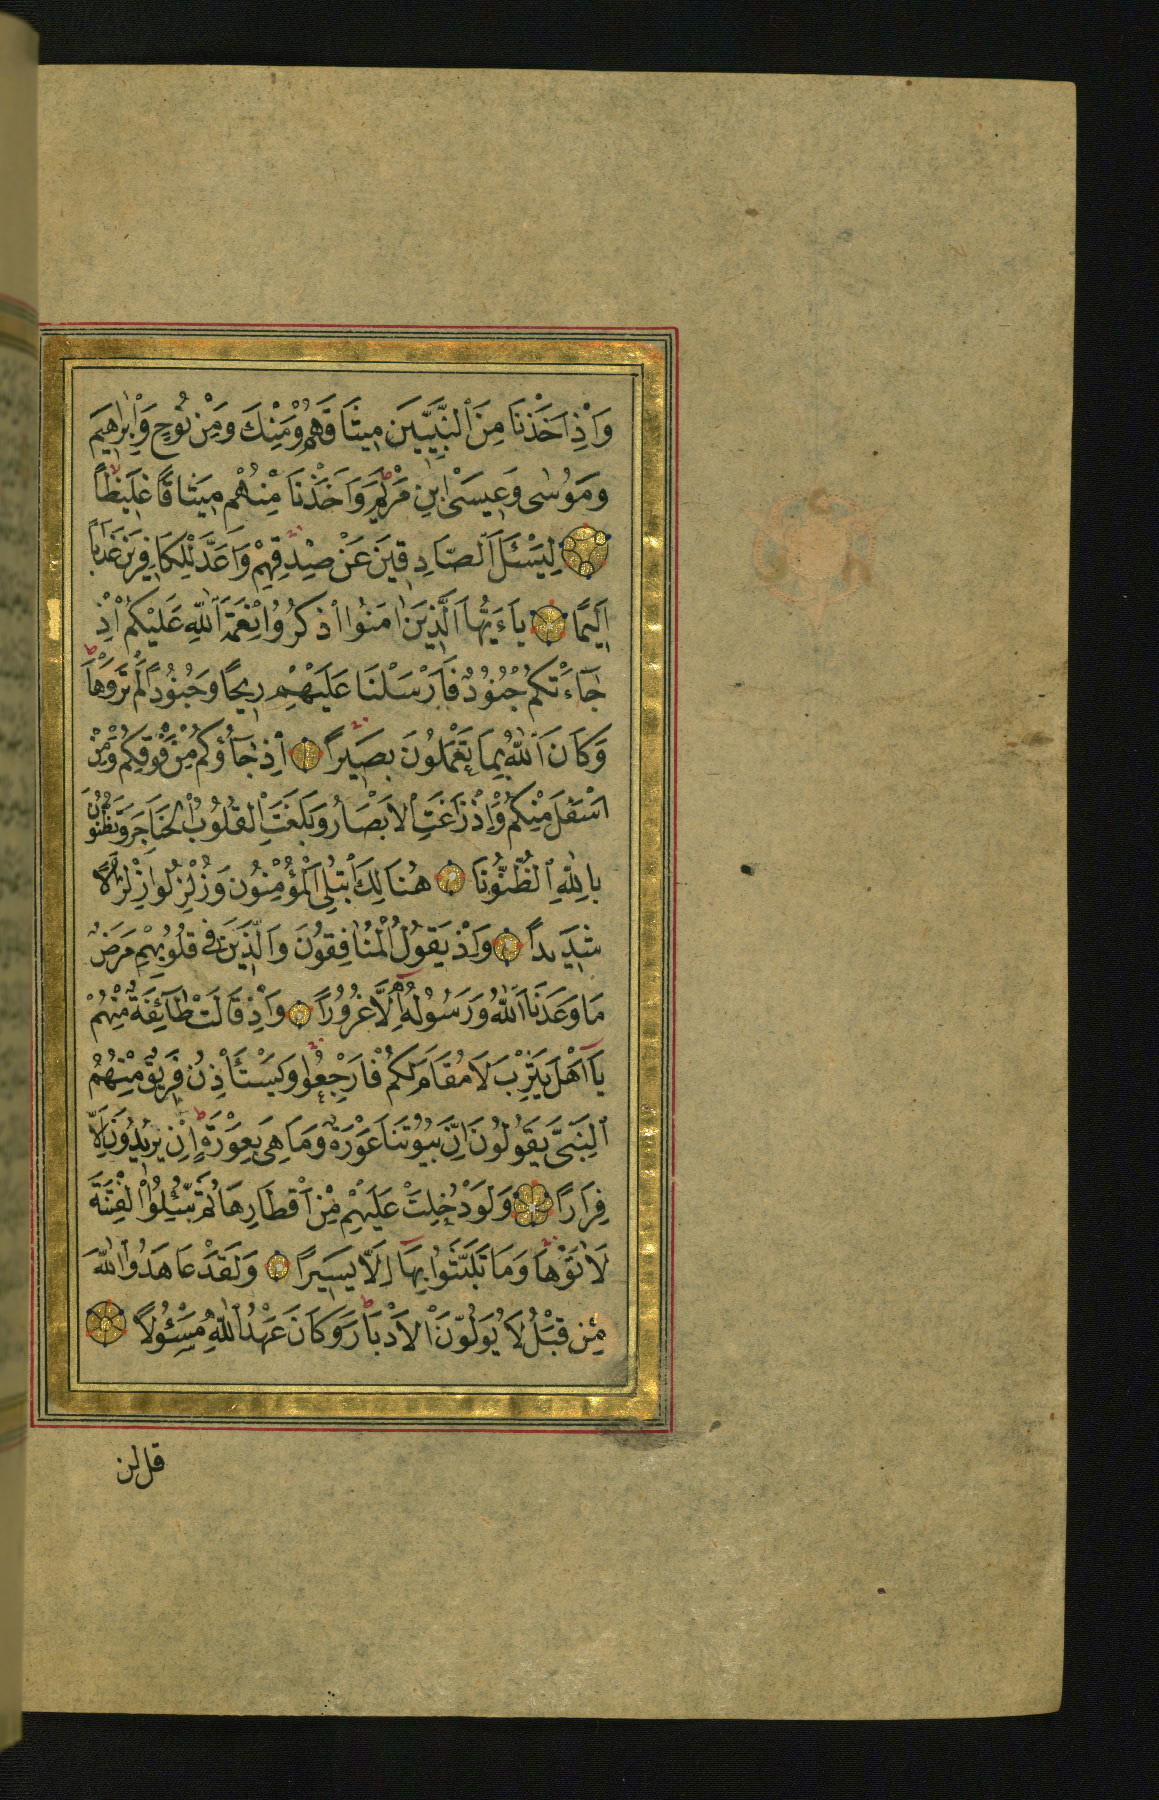 وَاِذْ اَخَذْنَا مِنَ ٱلنَّبِيّٖنَ مِيثَاقَهُمْ وَمِنْكَ وَمِنْ نُوحٍ وَاِبْرٰهِيمَ
وَمُوسٰى وَعِيسَى ابْنِ مَرْيَمَ وَاَخَذْنَا مِنْهُمْ مِيثَاقًا غَلِيظًا
لِيَسْئَلَ ٱلصَّادِقِينَ عَنْ صِدْقِهِمْ وَاَعَدَّ لِلْكَافِرِينَ عَذَابًا
اَلِيمًا يَاءَيُّهَا ٱلَّذِينَ اٰمَنُوا ٱذْكُرُوا نِعْمَةَ ٱللّٰهِ عَلَيْكُمْ اِذْ
جَآءَتْكُمْ جُنُودٌ فَاَرْسَلْنَا عَلَيْهِمْ رِيحًا وَجُنُودًا لَمْ تَرَوْهَا
وَكَانَ ٱللّٰهُ بِمَا تَعْمَلُونَ بَصِيرًا اِذْ جَآؤُكُمْ مِنْ فَوْقِكُمْ وَمِنْ
اَسْفَلَ مِنْكُمْ وَاِذْ زَاغَتِ ٱلْاَبْصَارُ وَبَلَغَتِ ٱلْقُلُوبُ ٱلْحَنَاجِرَ وَتَظُنُّونَ
بِاللّٰهِ ٱلظُّنُونَا هُنَالِكَ ٱبْتُلِيَ ٱلْمُؤْمِنُونَ وَزُلْزِلُوا زِلْزَالًا
شَدِيدًا وَاِذْ يَقُولُ ٱلْمُنَافِقُونَ وَالَّذِينَ فِى قُلُوبِهِمْ مَرَضٌ
مَا وَعَدَنَا ٱللّٰهُ وَرَسُولُهُ اِلَّا غُرُورًا وَاِذْ قَالَتْ طَآئِفَةٌ مِنْهُمْ
يَآ اَهْلَ يَثْرِبَ لَا مُقَامَ لَكُمْ فَارْجِعُوا وَيَسْتَأْذِنُ فَرِيقٌ مِنْهُمُ
ٱلنَّبِىَّ يَقُولُونَ اِنَّ بُيُوتَنَا عَوْرَةٌ وَمَا هِىَ بِعَوْرَةٍ اِنْ يُرِيدُونَ اِلَّا
فِرَارًا وَلَوْ دُخِلَتْ عَلَيْهِمْ مِنْ اَقْطَارِهَا ثُمَّ سُئِلُوا ٱلْفِتْنَةَ
لَاٰتَوْهَا وَمَا تَلَبَّثُوا بِهَآ اِلَّا يَسِيرًا وَلَقَدْ عَاهَدُوا ٱللّٰهَ
مِنْ قَبْلُ لَا يُوَلُّونَ ٱلْاَدْبَارَ وَكَانَ عَهْدُ ٱللّٰهِ مَسْئُولًا
قل لن